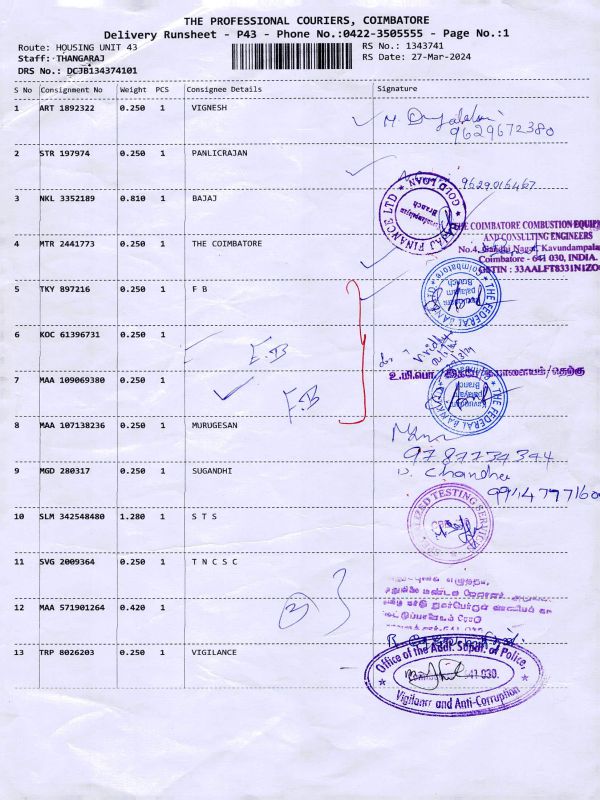 THE PROFESSIONAL COURIERS, COIMBATORE
Delivery Runsheet - P43 - Phone No.:0422-3505555 - Page No.:1
Route: HOUSING UNIT 43
RS No.: 1343741
Staff: THANGARAJ
RS Date: 27-Mar-2024
DRS No.: DCJB134374101
S No Consignment No Weight PCS Consignee Details Signature
1 ART 1892322 0.250 1 VIGNESH
9629672380
2 STR 197974 0.250 1 PANLICRAJAN
9629016467
3 NKL 3352189 0.810 1 BAJAJ
BAJAJ FINANCE LTD GOLD LOAN Branch
4 MTR 2441773 0.250 1 THE COIMBATORE
THE COIMBATORE COMBUSTION EQUIP
AND CONSULTING ENGINEERS
No.4, Nagar, Kavundampala
Coimbatore - 641 030, INDIA.
GSTIN : 33AALFT8331N1ZO
5 TKY 897216 0.250 1 F B
THE FEDERAL BANK LTD Branch
6 KOC 61396731 0.250 1
F.B
7 MAA 109069380 0.250 1
F.B
THE FEDERAL BANK LTD Branch
8 MAA 107138236 0.250 1 MURUGESAN
9787734344
9 MGD 280317 0.250 1 SUGANDHI
Chandra
9944777160
10 SLM 342548480 1.280 1 S T S
TESTING SERVICES
11 SVG 2009364 0.250 1 T N C S C
12 MAA 571901264 0.420 1
2
13 TRP 8026203 0.250 1 VIGILANCE
Office of the Addl. Supdt. of Police,
641 030.
Vigilance and Anti-Corruption